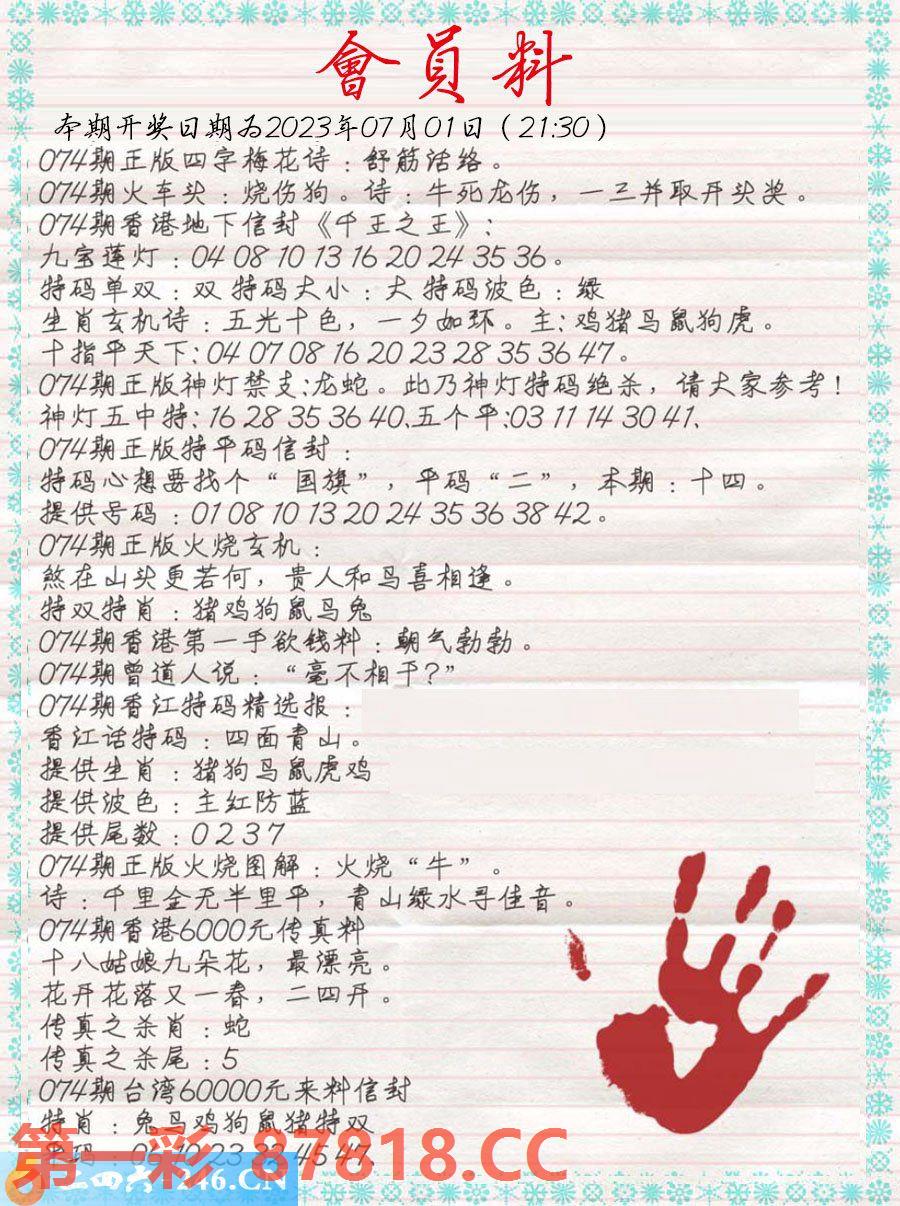 會員料
本期开奖日期为2023年07月01日（21:30）
074期正版四字梅花诗：舒筋活络。
074期火车头：烧伤狗。诗：牛死龙伤，一三并取开头奖。
074期香港地下信封《千王之王》：
九宝莲灯：04 08 10 13 16 20 24 35 36。
特码单双：双 特码大小：大 特码波色：绿
生肖玄机诗：五光十色，一夕如环。主：鸡猪马鼠狗虎。
十指平天下：04 07 08 16 20 23 28 35 36 47。
074期正版神灯禁支：龙蛇。此乃神灯特码绝杀，请大家参考！
神灯五中特：16 28 35 36 40.五个平：03 11 14 30 41.
074期正版特平码信封：
特码心想要找个“国旗”，平码“二”，本期：十四。
提供号码：01 08 10 13 20 24 35 36 38 42。
074期正版火烧玄机：
煞在山头更若何，贵人和马喜相逢。
特双特肖：猪鸡狗鼠马兔
074期香港第一手欲钱料：朝气勃勃。
074期曾道人说：“毫不相于？”
074期香江特码精选报：
香江话特码：四面青山。
提供生肖：猪狗马鼠虎鸡
提供波色：主红防蓝
提供尾数：0 2 3 7
074期正版火烧图解：火烧“牛”。
诗：千里金无半里平，青山绿水寻佳音。
074期香港6000元传真料
十八姑娘九朵花，最漂亮。
花开花落又一春，二四开。
传真之杀肖：蛇
传真之杀尾：5
074期台湾60000元来料信封
特肖：兔马鸡狗鼠猪特双
23 45 47.
第一彩 87818.CC
二四六 246.CN